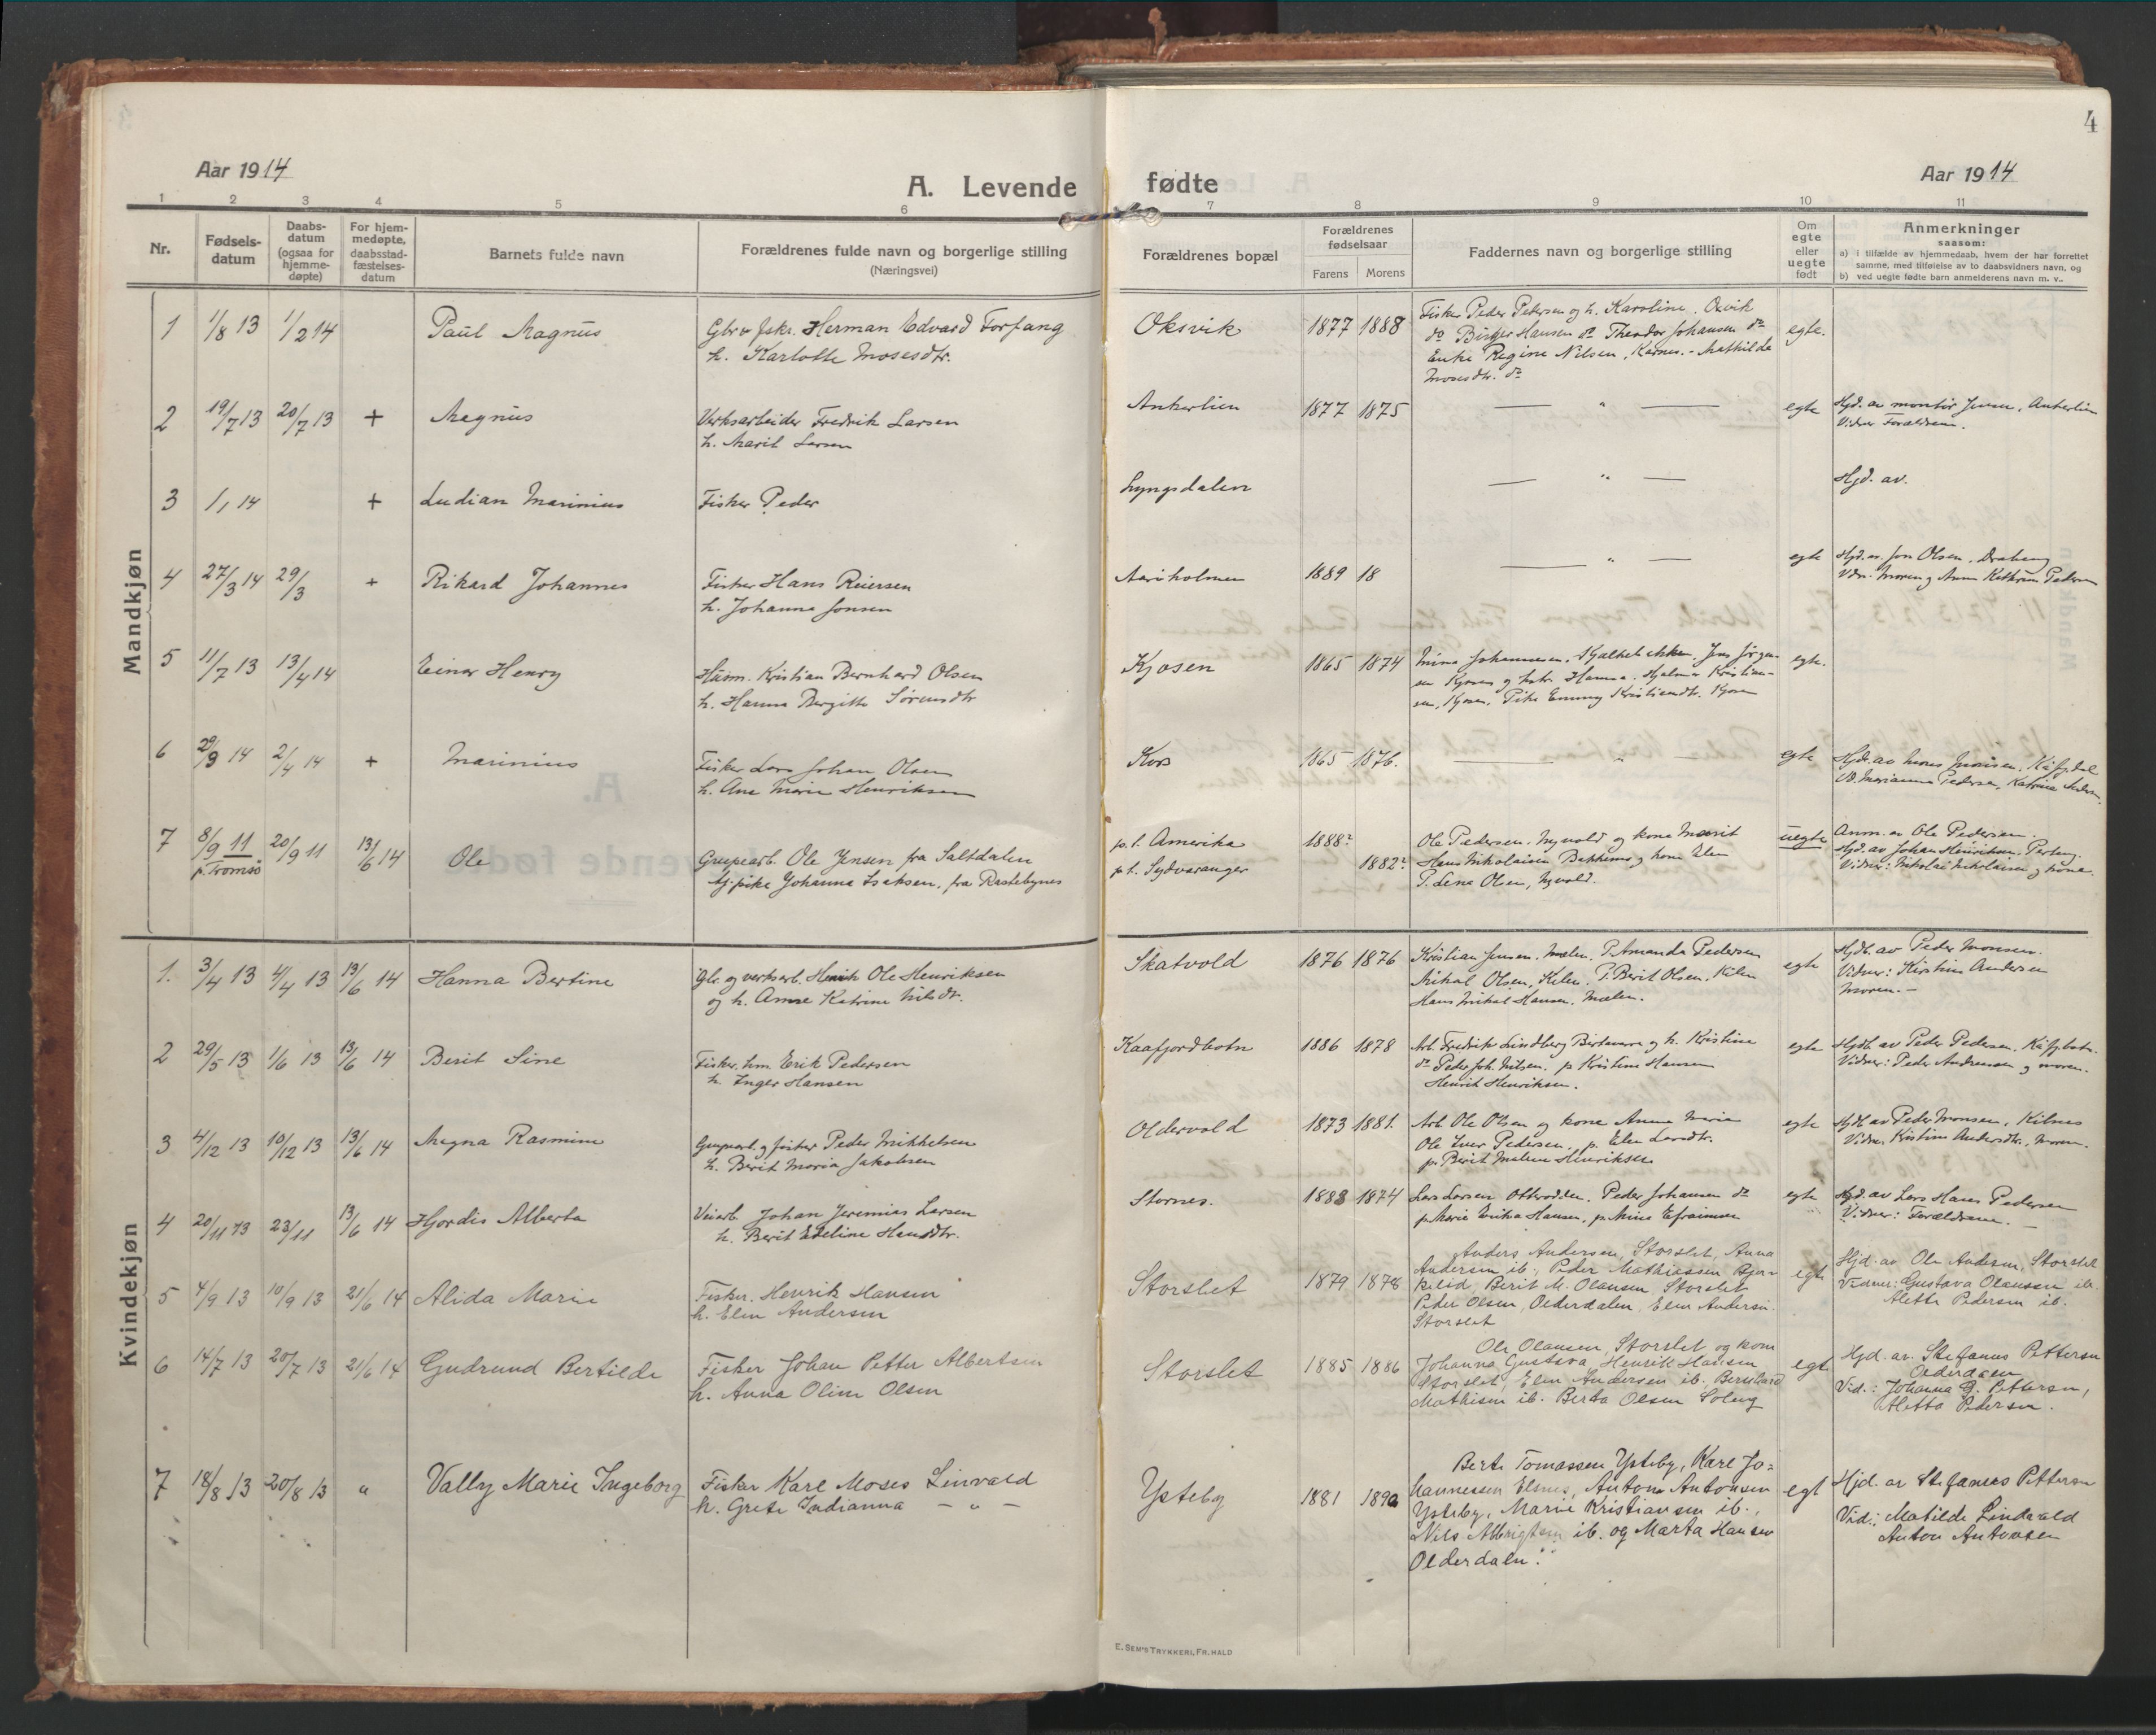 4
Aar 1914
A. Levende fødte
Aar 1914
1 2 3 4 5 6 7 8 9 10 11
Nr.
Fødsels-
datum
Daabs-
datum
(ogsaa for
hjemme-
døpte)
For hjem-
medøpte,
daabsstad-
fæstelses-
datum
Barnets fulde navn
Forældrenes fulde navn og borgerlige stilling
(Næringsvei)
Forældrenes bopæl
Forældrenes
fødselsaar
Farens Morens
Faddernes navn og borgerlige stilling
Om
egte
eller
uegte
født
Anmerkninger
saasom:
a) i tilfælde av hjemmedaab, hvem der har forrettet
samme, med tilføielse av to daabsvidners navn, og
b) ved uegte fødte barn anmelderens navn m. v.
Mandkjøn
1 1/8 13 1/2 14 Paul Magnus
Gbr. o fskr. Herman Edvard Forfang
h. Karlotte Mosesdtr.
Oksvik 1877 1888
Fisker Peder Petersen og h. Karoline. Oxvik
do Birger Hansen do Theodor Johansen do
Enke Regine Nilsen, Karnes. - Mathilde
Mosesdtr. do
egte.
2 19/7 13 20/7 13 + Magnus
Verksarbeider Fredrik Larsen
h. Marit Larsen
Ankerlien 1877 1875 — " — egte
Hjd. av montör Jensen, Ankerlien
Vidner Forældrene.
3 1/1 14 + Ludian Marinius
Fisker Peder
Lyngsdalen — " —
Hjd. av.
4 27/3 14 29/3 + Rikard Johannes
Fisker Hans Reiersen
h. Johanna Jonsen
1889 18 — " — egte
Hjd. av. Jon Olsen,
Vidn. Moren og Anna Kathrine Pedersen
5 11/7 13 13/4 14 Einar Henry
Husm. Kristian Bernhard Olsen
h. Hanna Bergitte Sørensdtr
Kjosen 1865 1874
Johannesen, Jens Jörgen-
sen Kjosen og hstr. Hanna. Hjalmar Kristian-
sen, Kjosen, Pike Emmy Kristiansdtr. Kjosen
egte.
6 29/3 14 2/4 14 + Marinius
Fisker Lars Johan Olsen
h. Ane Marie Henriksen
Kors 1865 1876. — " — egte
Hjd. av Mons Monsen, Kåfjdal
Vid. Marianna Pedersen, Katrine
7 8/9 11 20/9 11 13/6 14 Ole
p. Tromsø
Grupearb. Ole Jensen fra Saltdalen
tj. pike Johanna Isaksen, fra Rastebynes
p.t. Amerika 1888?
p.t. Sydvaranger 1882?
Ole Pedersen, Nyvold og kone Marit
Hans Nikolaisen Bakkemo og kone Elen
P. Lena Olsen, Nyvold.
uegte
Anm. av Ole Pedersen.
Hjd. av Johan Henriksen,
Vidner: Nikolai Nikolaisen og kone.
Kvindekjøn
1. 3/4 13 4/4 13 13/6 14 Hanna Bertine
Gbr. og verksarb. Henrik Ole Henriksen
og h. Anne Katrine Nilsdtr.
Skatvold 1876 1876
Kristian Jensen. Mælen. P. Amanda Pedersen
Mikal Olsen, Kilen. P. Berit Olsen, Kilen
Hans Mikal Hansen, Mælen.
egte
Hjdb. av Peder Monsen.
Vidner: Kirstine Andersen
Moren. -
2 29/5 13 1/6 13 13/6 14 Berit Sine
Fisker, hm. Erik Pedersen
h. Inger Hansen
Kaafjordbotn 1886 1878
Arb. Fredrik Lindberg og h. Kristine
do Peder Joh. Nilsen. p Kristine Hansen
Henrik Henriksen.
egte
Hjdb. av Peder Pedersen, Kåfj.botn.
Vidner: Peder Andreassen og moren.
3 4/12 13 10/12 13 13/6 14 Magna Rasmine
Grupearb. og fisker Peder Mikkelsen
h. Berit Maria Jakobsen
Oldervold 1873 1881.
Arb. Ole Olsen og kone Anne Marie
Ole Iver Pedersen, p. Elen Larsdtr.
p. Berit Malene Henriksen
egte
Hjdb. av Peder Monsen, Kilnes
Vidner Kristine Andersdtr., Moren.
4 20/11 13 23/11 13/6 14 Hjordis Alberta
Veiarb. Johan Jeremias Larsen
h. Berit Edeline Hansdtr.
Stornes. 1883 1874
Lars Larsen Peder Johansen do
p. Marie Erika Hansen, p. Nina Efraimsen
egte
Hjd. av Lars Hans Pedersen
Vidner: Forældrene. -
5 4/9 13 10/9 13 21/6 14 Alida Marie
Fisker. Henrik Hansen
h. Elen Andersen
Storslet 1879 1878
Anders Andersen, Storslet, Anna
Andersen ib., Peder Mathiassen Bjer-
kelid, Berit M. Olausen, Storslet
Peder Olsen, Olderdalen, Elen Andersen
Storslet
egte
Hjd. av Ole Andersen, Storslet
Vidner: Gustava Olaussen ib.
Aletta Pedersen ib.
6 14/7 13 20/7 13 21/6 14 Gudrund Bertilde
Fisker Johan Petter Albertsen
h. Anna Oline Olsen
Storslet 1885 1886
Ole Olausen, Storslet og kone
Johanna Gustava, Henrik Hansen
Storslet, Elen Andersen ib. Bernhard
Mathisen ib. Berta Olsen Soleng
egte
Hjd. av. Stefanus Pettersen
Olderdalen
Vid.: Johanna B. Pettersen,
Aletta Pedersen.
7 18/8 13 20/8 13 " Vally Marie Ingeborg
Fisker Karl Moses Linvald
h. Grete Indianna — " —
Ysteby 1881 1890
Berte Tomassen Ysteby, Karl Jo-
hannessen Elsnes, Anton Antonsen
Ysteby, Marie Kristiansen ib.,
Nils Albrigtsen ib. og Marta Hansen
Olderdalen.
egt
Hjd. av Stefanus Pettersen
Vid.: Matilde Lindvald
Anton Antonsen
E. SEM'S TRYKKERI, FR.HALD